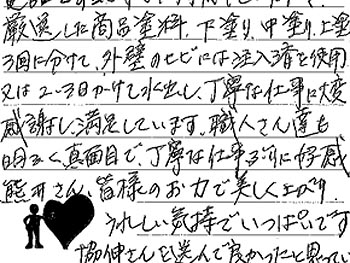 厳選した商品塗料、下塗り、中塗り、上塗
3回に分けて、外壁のヒビには注入済を使用
又は2~3日かけて水出し、丁寧な仕事に大変
感謝し満足しています。職人さん達も
明るく真面目で、丁寧な仕事ぶりに好感
熊井さん、皆様のお力で美しく上がり
うれしい気持でいっぱいです
協伸さんを選んで良かったと思ってい